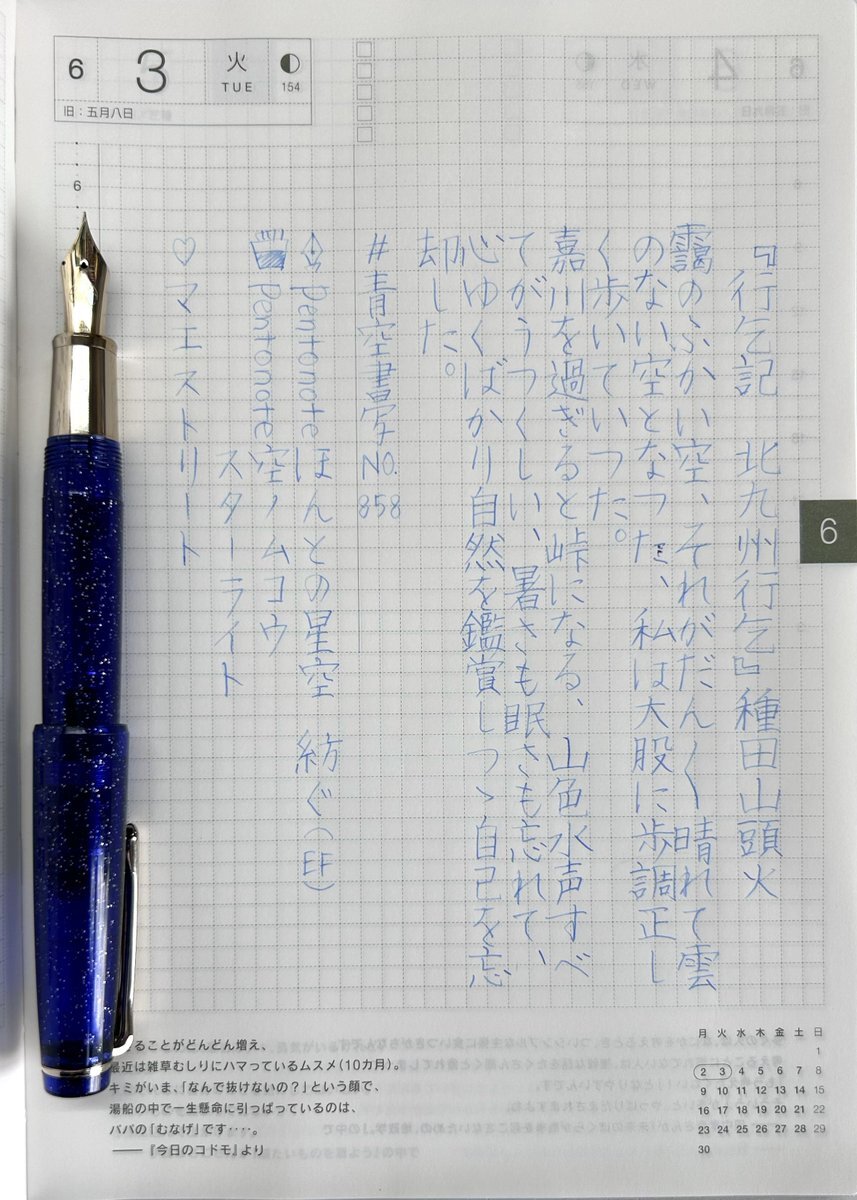 6
3
火
TUE
154
旧：五月八日
6
『行乞記　北九州行乞』種田山頭火
靄のふかい空、それがだん〱晴れて雲
のない空となつた、私は大股に歩調正し
く歩いていつた。
嘉川を過ぎると峠になる、山色水声すべ
てがうつくしい、暑さも眠さも忘れて、
心ゆくばかり自然を鑑賞しつゝ自己を忘
却した。
#青空書写NO.858
pentonoteほんとの星空　紡ぐ(EF)
pentonote空ノムコウ
スターライト
♡マエストリート
6
きることがどんどん増え、
最近は雑草むしりにハマっているムスメ(10カ月)。
キミがいま、「なんで抜けないの？」という顔で、
湯船の中で一生懸命に引っぱっているのは、
パパの「むなげ」です‥‥。
——『今日のコドモ』より
月 火 水 木 金 土 日
1
2 3 4 5 6 7 8
9 10 11 12 13 14 15
16 17 18 19 20 21 22
23 24 25 26 27 28 29
30